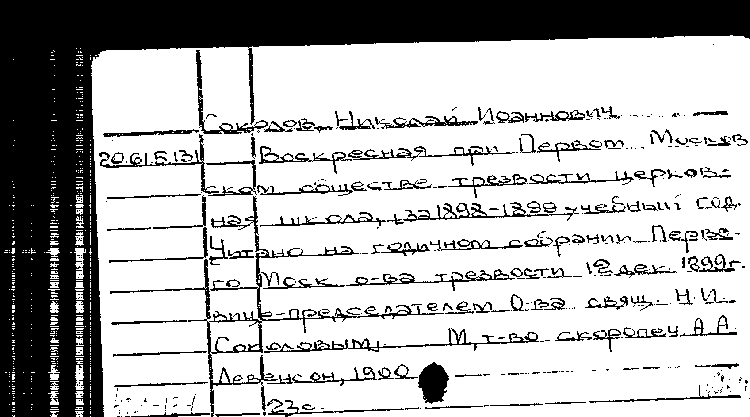 Соколов, Николай Иоаннович
20.61.5.131 Воскресная при Первом Москов
ском обществе трезвости церков-
ная школа, за 1898-1899 учебный год.
Читано на годичном собрании Перво-
го Моск о-ва трезвости 12 дек 1899г.
вице-председателем О-ва свящ. Н.И.
Соколовым. М, т-во скоропеч А А
Левенсон, 1900
23с.